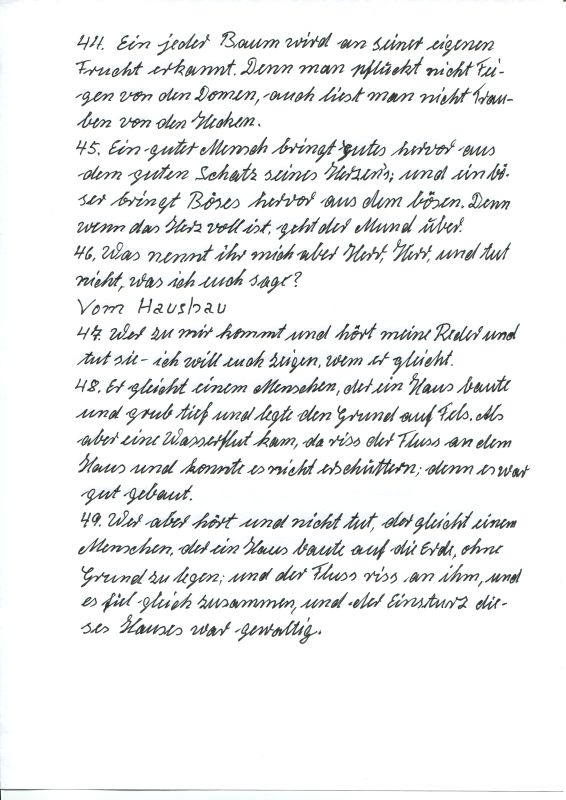 44. Ein jeder Baum wird an seiner eigenen
Frucht erkannt. Denn man pflückt nicht Fei-
gen von den Dornen, auch liest man nicht Trau-
ben von den Hecken.
45. Ein guter Mensch bringt gutes hervor aus
dem guten Schatz seines Herzens; und ein bö-
ser bringt Böses hervor aus dem bösen. Denn
wenn das Herz voll ist, geht der Mund über.
46. Was nennt ihr mich aber Herr, Herr, und tut
nicht, was ich euch sage?
Vom Hausbau
47. Wer zu mir kommt und hört meine Reden und
tut sie - ich will euch zeigen, wem er gleicht.
48. Er gleicht einem Menschen, der ein Haus baute
und grub tief und legte den Grund auf Fels. Als
aber eine Wasserflut kam, da riss der Fluss an dem
Haus und konnte es nicht erschüttern; denn es war
gut gebaut.
49. Wer aber hört und nicht tut, der gleicht einem
Menschen, der ein Haus baute auf die Erde, ohne
Grund zu legen; und der Fluss riss an ihm, und
es fiel gleich zusammen, und der Einsturz die-
ses Hauses war gewaltig.